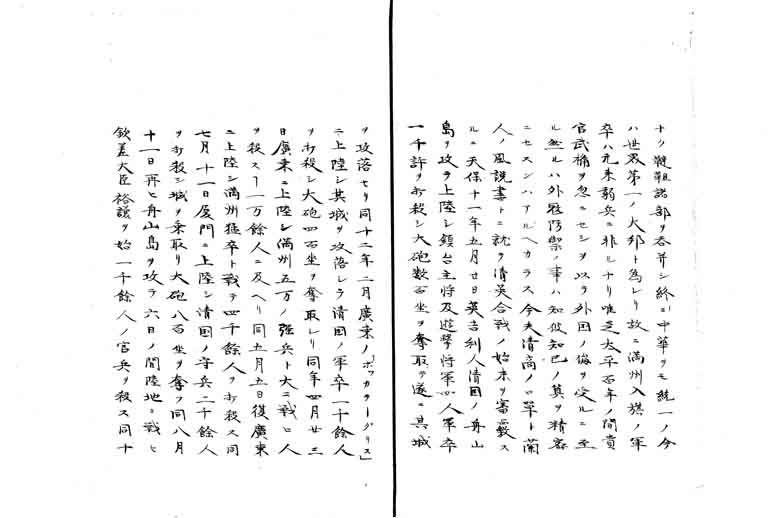 ナク韃靼諸部ヲ呑并シ終ニ中華ヲモ統一ノ今
ハ世界第一ノ大邦ト為レリ故ニ満州八旗ノ軍
卒ハ元来弱兵ニ非レトモ唯芝太平百年ノ間賞
官武備ヲ忽ニセシヲ以テ外国ノ侮ヲ受ルニ至
ル然ルハ外冦防禦ノ事ハ知彼知己ノ算ヲ精審
ニセスンハアルヘカラス今夫清商ノ口単ト蘭
人ノ風説書トニ就テ清英合戦ノ始末ヲ審覈ス
ルニ天保十一年五月廿日英吉利人清国ノ舟山
島ヲ攻テ上陸シ鎮台主将及遊撃将軍四人軍卒
一千許ヲ打殺シ大砲数百坐ヲ奪取テ遂ニ其城
ヲ攻落セリ同十二年二月廣東ノ「ボッカタークリス」
ニ上陸シ其城ヲ攻落シテ清国ノ軍卒一千餘人
ヲ打殺シ大砲四百坐ヲ奪取レリ同年四月廿三
日廣東ニ上陸シ満州五万ノ強兵ト大ニ戦ヒ人
ヲ殺スヿ一万餘人ニ及ヘリ同五月五日復廣東
ニ上陸シ満州猛卒ト戦テ四千餘人ヲ打殺ス同
七月十一日厦門ニ上陸シ清国ノ守兵二千餘人
ヲ打殺シ城ヲ乗取リ大砲八百坐ヲ奪フ同八月
十一日再ヒ舟山島ヲ攻テ六日ノ間陸地ニ戦ヒ
欽差大臣裕謙ヲ始一千餘人ノ官兵ヲ殺ス同十